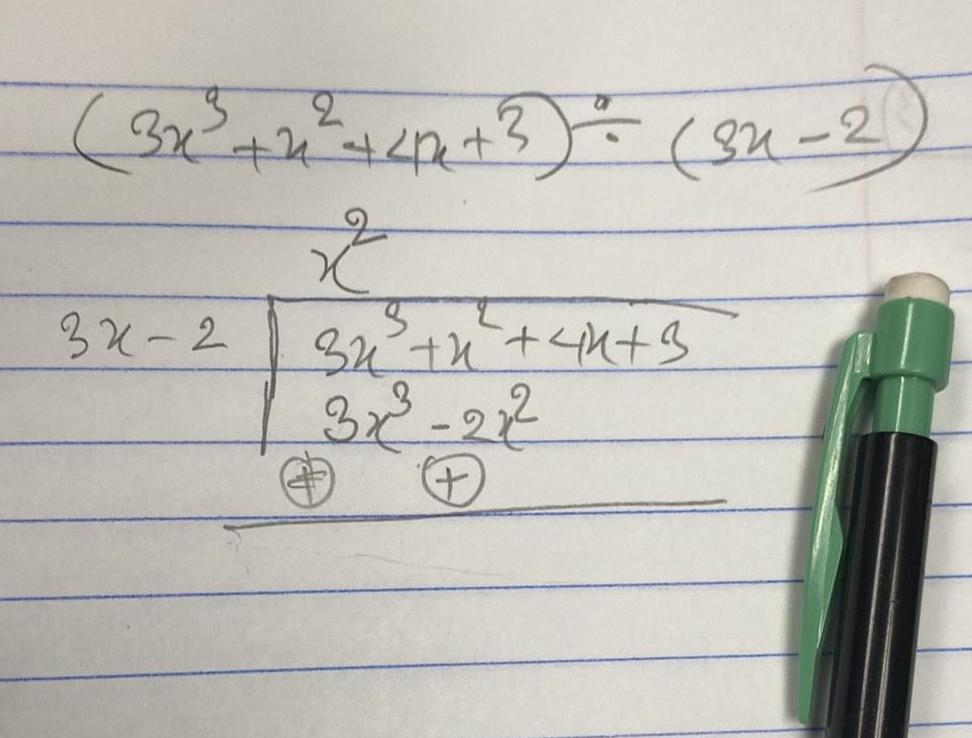 (3x³ + x² + 4x + 3) ÷ (3x - 2)
x²
3x - 2 | 3x³ + x² + 4x + 3
3x³ - 2x²
⊕ ⊕